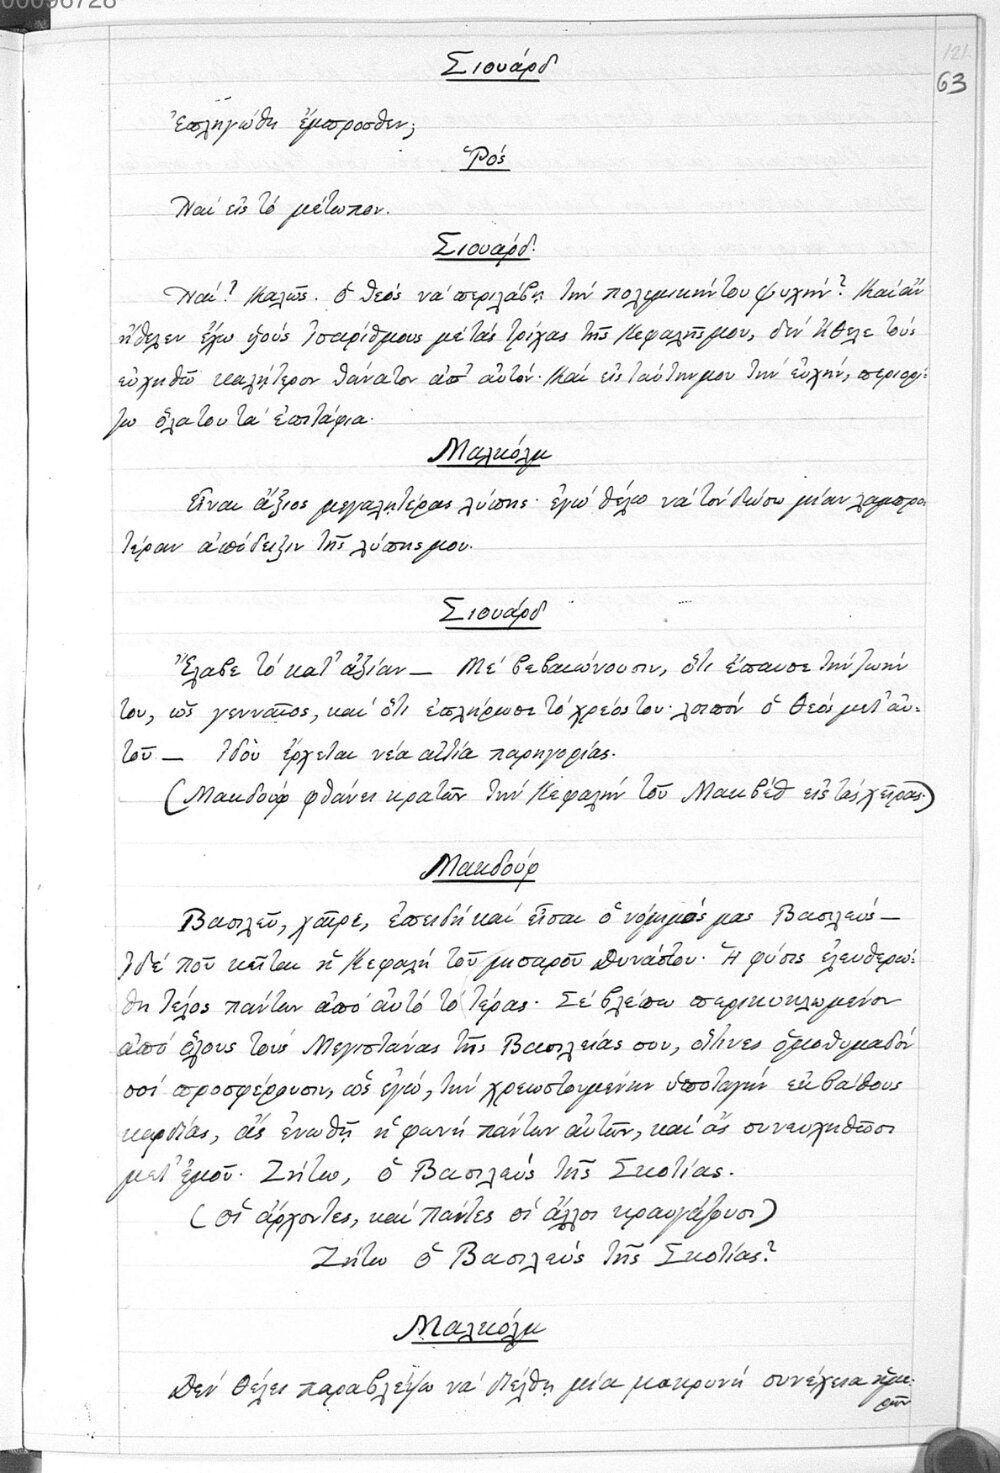 00096728
121
63
Σιουάρδ
Ἐπληγώθη ἔμπροσθεν;
Ῥός
Ναί εἰς τό μέτωπον.
Σιουάρδ.
Ναί! Καλῶς. ὁ θεός νά περιλάβῃ τήν πολεμικήν του ψυχήν! Καί ἄν
ἤθελεν ἔχω υἱούς ἰσαρίθμους μέ τάς τρίχας τῆς κεφαλῆς μου, δέν ἤθελε τούς
εὐχηθῶ καλήτερον θάνατον ἀπ' αὐτόν. Καί εἰς ταύτην μου τήν εὐχήν, περιορί-
ζω ὅλα του τά ἐπιτάφια.
Μαλκόλμ
Εἶναι ἄξιος μεγαλητέρας λύπης· ἐγώ θέλω νά τόν δώσω μίαν λαμπρο-
τέραν ἀπόδειξιν τῆς λύπης μου.
Σιουάρδ
Ἔλαβε τό κατ' ἀξίαν — Μέ βεβαιώνουσιν, ὅτι ἔπαυσε τήν ζωήν
του, ὡς γενναῖος, καί ὅτι ἐπλήρωσε τό χρέος του· λοιπόν ὁ Θεός μετ' αὐ-
τοῦ — Ἰδού ἔρχεται νέα αἰτία παρηγορίας.
(Μακδούφ φθάνει κρατῶν τήν κεφαλήν τοῦ Μακβέθ εἰς τάς χεῖρας)
Μακδούφ
Βασιλεῦ, χαῖρε, ἐπειδή καί εἶσαι ὁ νόμιμός μας Βασιλεύς —
Ἰδέ ποῦ κεῖται ἡ κεφαλή τοῦ μιαροῦ δυνάστου. Ἡ φύσις ἐλευθερώ-
θη τέλος πάντων ἀπό αὐτό τό τέρας. Σέ βλέπω περικυκλωμένον
ἀπό ὅλους τούς Μεγιστάνας τῆς Βασιλείας σου, οἵτινες ὁμοθυμαδόν
σοί προσφέρουσιν, ὡς ἐγώ, τήν χρεωστουμένην ὑποταγήν ἐκ βάθους
καρδίας, ἄς ἑνωθῇ ἡ φωνή πάντων αὐτῶν, καί ἄς συνευχηθῶσι
μετ' ἐμοῦ. Ζήτω, ὁ Βασιλεύς τῆς Σκοτίας.
(οἱ ἄρχοντες, καί πάντες οἱ ἄλλοι κραυγάζουσι)
Ζήτω ὁ Βασιλεύς τῆς Σκοτίας!
Μαλκόλμ
Δέν θέλει παραβλέψω νά διέλθῃ μία μακρυνή συνέχεια ἡμε-
ρῶν